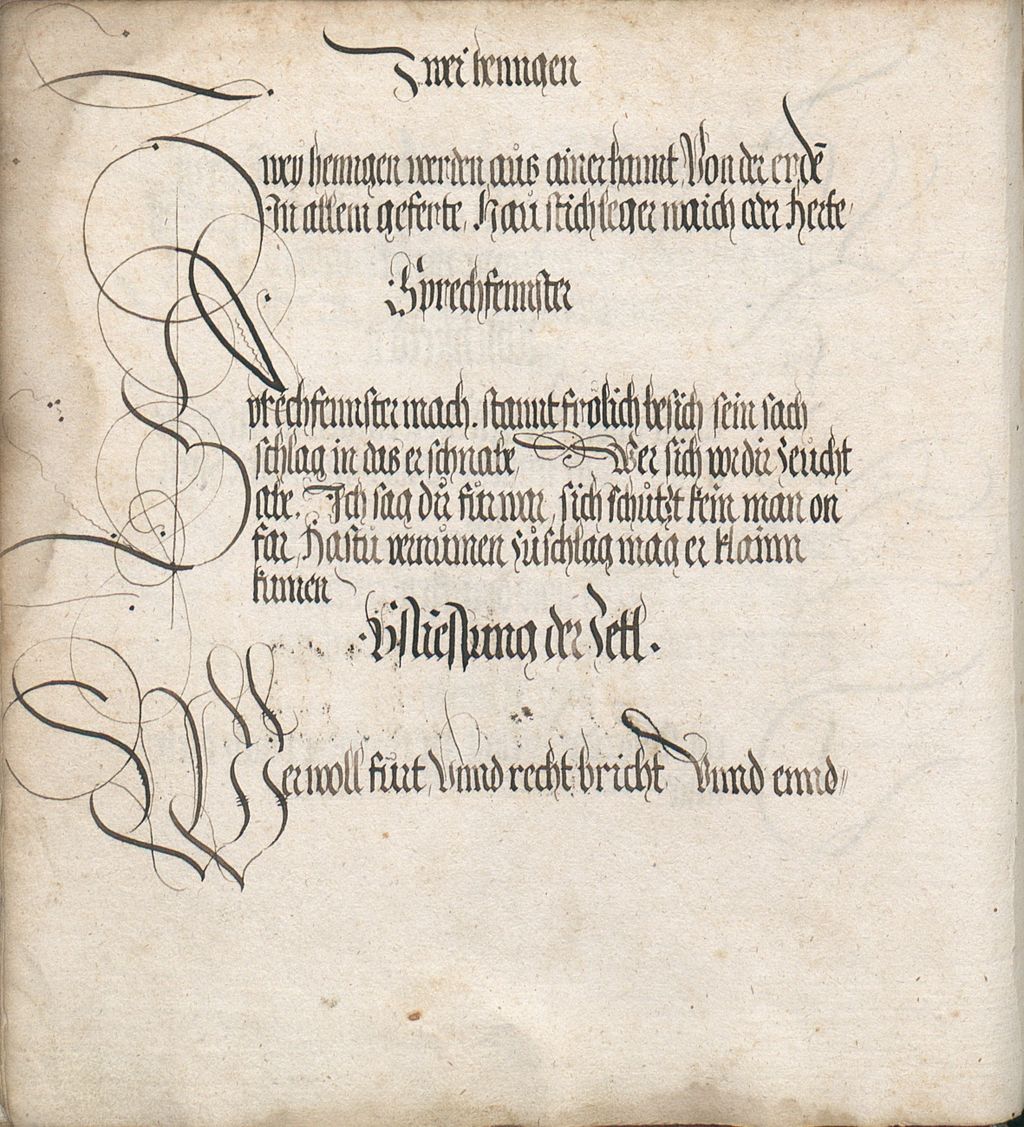 Zwei henngen
Zwey henngen werden aus ainer hannt Von der erdē
In allem geferte, Hau stich leger waich oder herte
Sprechfennster
Sprechfennster mach. stannt frölich besich sein sach
schlag in das er schnabe, Wer sich vor dir zeucht
abe, Ich sag dir für war, sich schützt kein man on
far, Hastu vernumen zů schlag mag er klainn
kumen
Vsliessung der Zettl.
Wer woll fürt, Vnnd recht bricht Vnnd ennd